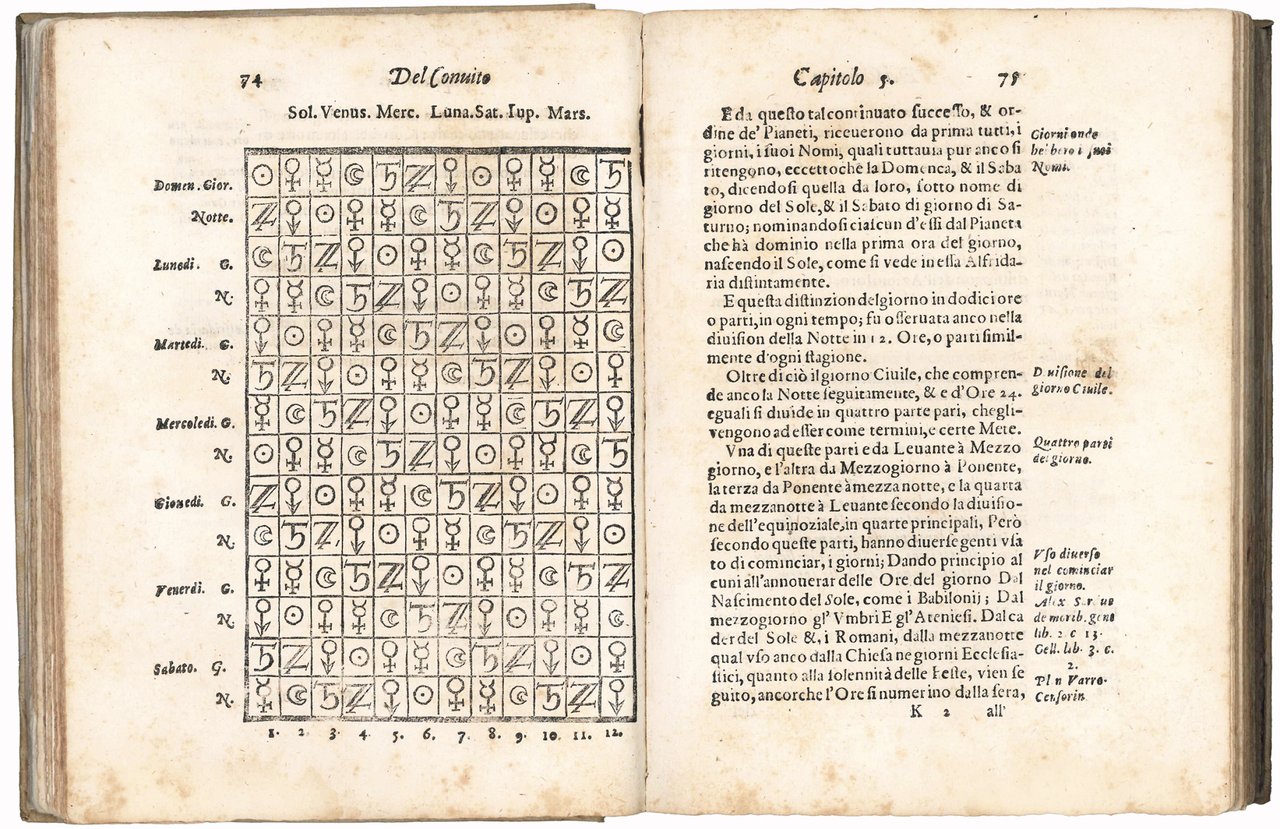 74 Del Conuito
Sol. Venus. Merc. Luna. Sat. Iup. Mars.
Domen. Gior.
Notte.
Lunedi. G.
N.
Martedi. G.
N.
Mercoledi. G.
N.
Giouedi. G.
N.
Venerdi. G.
N.
Sabato. G.
N.
1. 2. 3. 4. 5. 6. 7. 8. 9. 10. 11. 12.
Capitolo 5. 75
E da queſto tal continuato ſucceſſo, & or-
dine de' Pianeti, riceuerono da prima tutti, i
giorni, i ſuoi Nomi, quali tuttauia pur anco ſi
ritengono, eccetto che la Domenca, & il Saba
to, dicendoſi quella da loro, ſotto nome di
giorno del Sole, & il Sabato di giorno di Sa-
turno; nominandoſi ciaſcun d'eſſi dal Pianeta
che hà dominio nella prima ora del giorno,
naſcendo il Sole, come ſi vede in eſſa Alfrida-
ria diſtintamente.
E queſta diſtinzion del giorno in dodici ore
o parti, in ogni tempo; fu oſſeruata anco nella
diuiſion della Notte in 12. Ore, o parti ſimil-
mente d'ogni ſtagione.
Oltre di ciò il giorno Ciuile, che compren-
de anco la Notte ſeguitamente, & e d'Ore 24.
eguali ſi diuide in quattro parte pari, che gli-
vengono ad eſſer come termini, e certe Mete.
Vna di queſte parti e da Leuante à Mezzo
giorno, e l'altra da Mezzogiorno à Ponente,
la terza da Ponente à mezza notte, e la quarta
da mezzanotte à Leuante ſecondo la diuiſio-
ne dell'equinoziale, in quarte principali, Però
ſecondo queſte parti, hanno diuerſe genti vſa
to di cominciar, i giorni; Dando principio al
cuni all'annouerar delle Ore del giorno Dal
Naſcimento del Sole, come i Babilonij; Dal
mezzogiorno gl' Vmbri E gl'Atenieſi. Dal ca
der del Sole &, i Romani, dalla mezzanotte
qual vſo anco dalla Chieſa ne giorni Eccleſia-
ſtici, quanto alla ſolennità delle Feſte, vien ſe
guito, ancorche l'Ore ſi numerino dalla ſera,
K 2 all'
Giorni onde
hebbero i ſuoi
Nomi.
Diuiſione del
giorno Ciuile.
Quattro parti
del giorno.
Vſo diuerſo
nel cominciar
il giorno.
Alex
de morib. gent
lib. 2 c 13.
Gell. lib. 3. c.
2.
Plin Varro.
Cenſorin